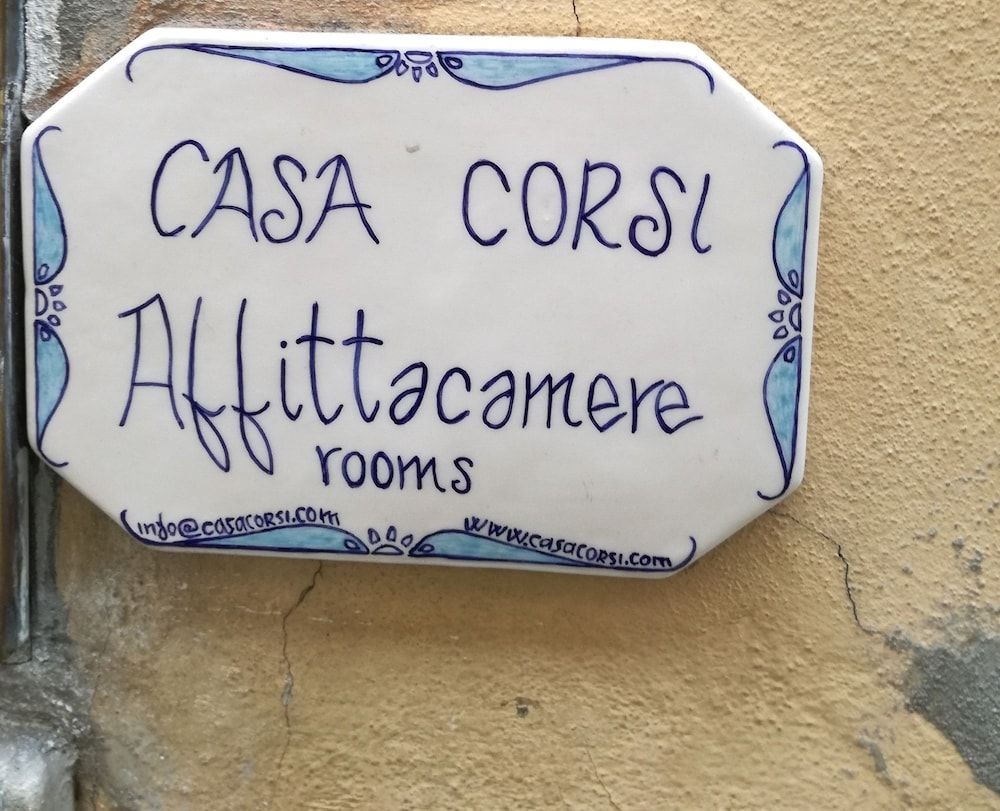 CASA CORSI
Affittacamere
rooms
info@casacorsi.com
www.casacorsi.com